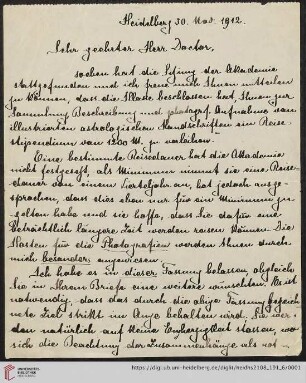 Heidelberg 30. Nov. 1912.
Sehr geehrter Herr Doctor,
soeben hat die Sitzung der Akademie
stattgefunden und ich freue mich Ihnen mitteilen
zu können, dass die Akad. beschlossen hat, Ihnen zur
Sammlung Beschreibung und photogr. Aufnahme von
illustrierten astrologischen Handschriften ein Reise
stipendium von 1200 M. zu verleihen.
Eine bestimmte Reisedauer hat die Akademie
nicht festgesetzt, als Minimum nimmt sie eine Reise-
dauer von einem Vierteljahr an, hat jedoch ausge-
sprochen, dass dies eben nur für ein Minimum zu
gelten habe und sie hoffe, dass Sie dafür eine
beträchtlich längere Zeit werden reisen können. Die
Kosten für die Photografien werden Ihnen durch
mich besonders angewiesen.
Ich habe es in dieser Fassung belassen, obgleich
Sie in Ihrem Briefe eine weitere wünschten. Es ist
notwendig, dass das durch die obige Fassung bezeich
nete Ziel strikt im Auge behalten wird. Sie wer-
den natürlich auf keine Engherzigkeit stossen, wo
sich die Beachtung der Zusammenhänge als not-
https://digi.ub.uni-heidelberg.de/diglit/heidhs2108_191_6/0001
UNIVERSITÄTS-
BIBLIOTHEK
HEIDELBERG